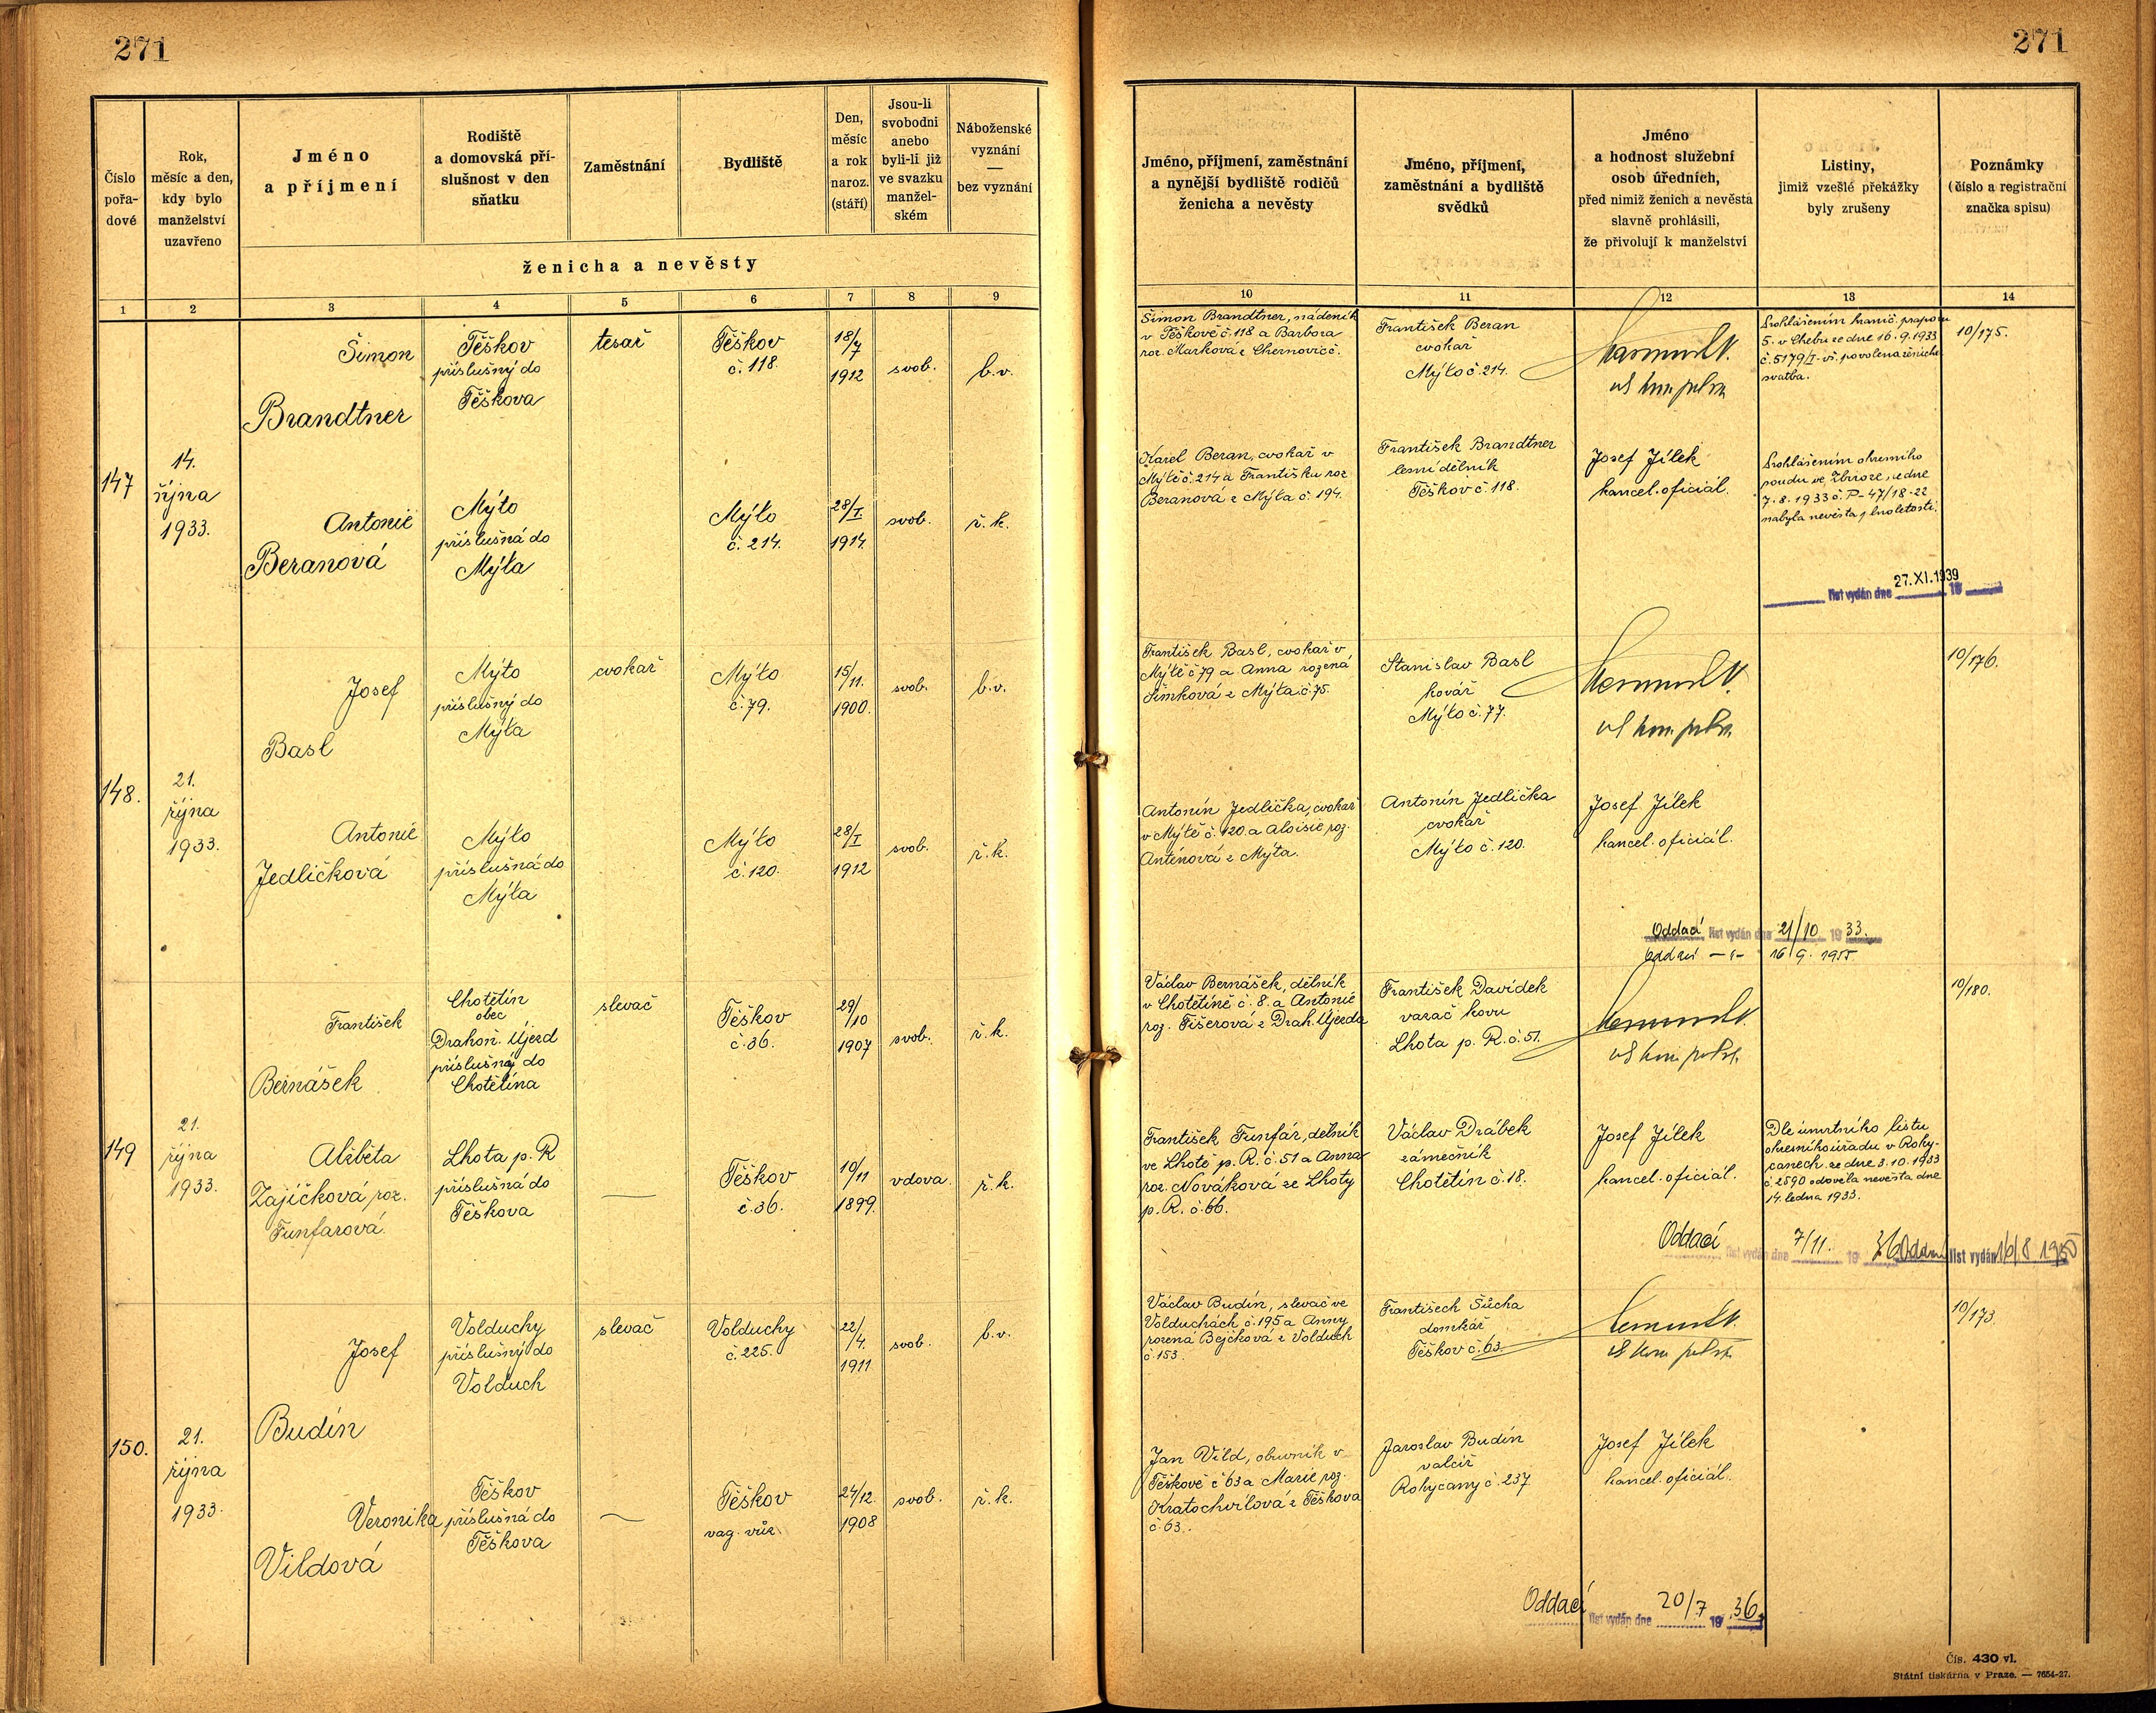 271
271
Číslo
pořa-
dové
Rok,
měsíc a den,
kdy bylo
manželství
uzavřeno
Jméno
a příjmení
Rodiště
a domovská pří-
slušnost v den
sňatku
Zaměstnání
Bydliště
Den,
měsíc
a rok
naroz.
(stáří)
Jsou-li
svobodni
anebo
byli-li již
ve svazku
manžel-
ském
Náboženské
vyznání
—
bez vyznání
ženicha a nevěsty
Jméno, příjmení, zaměstnání
a nynější bydliště rodičů
ženicha a nevěsty
Jméno, příjmení,
zaměstnání a bydliště
svědků
Jméno
a hodnost služební
osob úředních,
před nimiž ženich a nevěsta
slavně prohlásili,
že přivolují k manželství
Listiny,
jimiž vzešlé překážky
byly zrušeny
Poznámky
(číslo a registrační
značka spisu)
1 2 3 4 5 6 7 8 9
10 11 12 13 14
147
14.
října
1933.
Šimon
Brandtner
Těškov
příslušný do
Těškova
tesař
Těškov
č. 118.
18/7
1912
svob.
b.v.
Šimon Brandtner, nádeník
v Těškově č. 118 a Barbora
roz. Marková z Chernovic č.
František Beran
cvokař
Mýto č. 214.
Prohlášením hranič. praporu
5. v Chebu ze dne 16.9.1933
č. 5179/I vš. povolena ženichu
svatba.
10/175.
Antonie
Beranová
Mýto
příslušná do
Mýta
Mýto
č. 214.
28/I.
1914.
svob.
ř.k.
Karel Beran, cvokař v
Mýtě č. 214 a Františku roz
Beranová z Mýta č. 194.
František Brandtner
lesní dělník
Těškov č. 118.
Josef Jílek
kancel. oficiál.
Prohlášením okresního
soudu ve Zbiroze, ze dne
7.8.1933 č. P-47/18-22
nabyla nevěsta plnoletosti.
list vydán dne 27.XI.1939 19
148.
21.
října
1933.
Josef
Basl
Mýto
příslušný do
Mýta
cvokař
Mýto
č. 79.
15/11.
1900.
svob.
b.v.
František Basl, cvokař v
Mýtě č 79 a Anna rozená
Šimková z Mýta č. 75.
Stanislav Basl
kovář
Mýto č. 77.
10/176.
Antonie
Jedličková
Mýto
příslušná do
Mýta
Mýto
č. 120.
28/I
1912
svob.
ř.k.
Antonín Jedlička, cvokař
v Mýtě č. 120 a Aloisie roz.
Anténová z Mýta.
Antonín Jedlička
cvokař
Mýto č. 120.
Josef Jílek
kancel. oficiál.
Oddací list vydán dne 21/10 19 33.
Oddací –"– 16/9. 1955
149
21.
října
1933.
František
Bernášek
Chotětín
obec
Drahoň. Újezd
příslušný do
Chotětína
slevač
Těškov
č. 36.
29/10
1907
svob.
ř.k.
Václav Bernášek, dělník
v Chotětíně č. 8. a Antonie
roz. Fišerová z Drah. Újezda
František Davídek
vazač kovu
Lhota p. R. č. 51.
10/180.
Alžběta
Zajíčková roz.
Funfarová.
Lhota p. R
příslušná do
Těškova
—
Těškov
č. 36.
10/11
1899.
vdova
ř.k.
František Funfár, dělník
ve Lhotě p. R. č. 51 a Anna
roz. Nováková ze Lhoty
p. R. č. 66.
Václav Drábek
zámečník
Chotětín č. 18.
Josef Jílek
kancel. oficiál.
Dle úmrtního listu
okresního úřadu v Roky-
canech ze dne 3.10.1933
č. 2590 odověla nevěsta dne
14. ledna 1933.
Oddací list vydán dne 7/11. 19 36 Oddací list vydán 16/8. 1955
150.
21.
října
1933.
Josef
Budín
Volduchy
příslušný do
Volduch
slevač
Volduchy
č. 225.
22/4.
1911
svob.
b.v.
Václav Budín, slevač ve
Volduchách č. 195 a Anny
rozená Bejčková z Volduch
č. 153.
Františech Šůcha
domkář
Těškov č. 63.
10/173.
Veronika
Vildová
Těškov
příslušná do
Těškova
—
Těškov
vag. vůz
24/12.
1908
svob.
ř.k.
Jan Vild, obuvník v
Těškově č 63 a Marie roz.
Kratochvílová z Těškova
č. 63.
Jaroslav Budín
valcíř
Rokycany č. 237
Josef Jílek
kancel. oficiál.
Oddací list vydán dne 20/7 19 36.
Čís. 430 vl.
Státní tiskárna v Praze. — 7654-27.